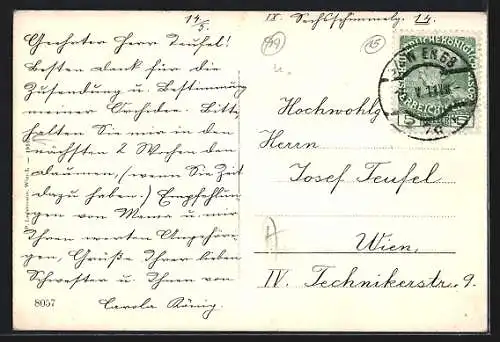 14/5.
IX. Sechsschimmelg. 14.
Geehrter Herr Teufel!
Besten Dank für die
Zusendung und Bestimmung
meiner Bitte
halten Sie mir in den
nächsten 2 Wochen den
Daumen, (wenn Sie Zeit
dazu haben.) Empfehlun-
gen von Mama u. mir
Ihren werten Angehöri-
gen, Grüße Ihrer lieben
Schwester u. Ihnen von
Carola König.
8057
Hochwohlg
Herrn
Josef Teufel
Wien,
IV. Technikerstr. 9.
WIEN 68